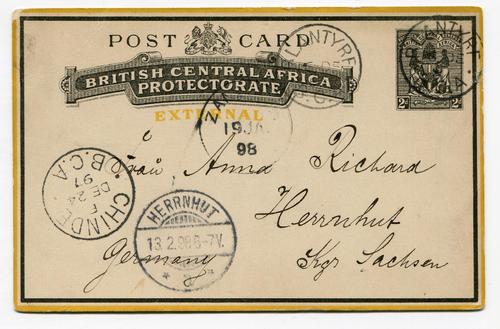 POST CARD
BRITISH CENTRAL AFRICA
PROTECTORATE
EXTERNAL
BLANTYRE
BLANTYRE
2d
ZAN
19 JA
98
CHINDE
B.C.A
F
DE 24
97
Frau Anna Richard
HERRNHUT
13.2.98 6-7V.
* a *
Herrnhut
Germany Kgr Sachsen